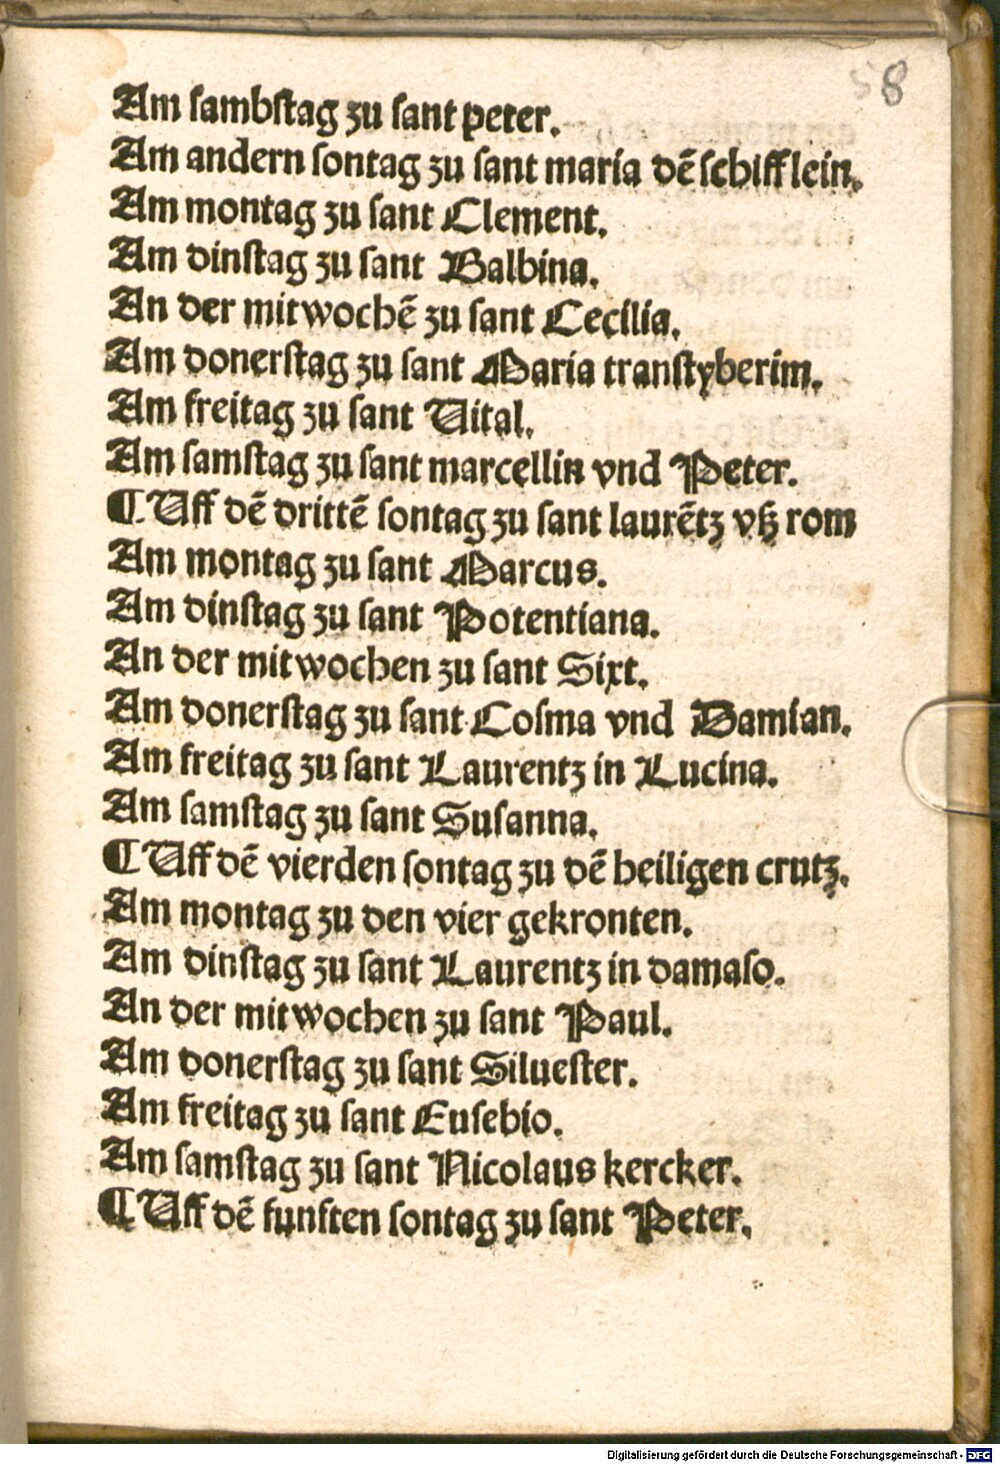 58
Am ſambſtag zu ſant peter.
Am andern ſontag zu ſant maria dē ſchifflein.
Am montag zu ſant Clement.
Am dinſtag zu ſant Balbina.
An der mitwochē zu ſant Cecilia.
Am donerſtag zu ſant Maria tranſtyberim.
Am freitag zu ſant Uital.
Am ſamſtag zu ſant marcellin vnd Peter.
¶ Uff dē drittē ſontag zu ſant laurētz vß rom
Am montag zu ſant Marcus.
Am dinſtag zu ſant Potentiana.
An der mitwochen zu ſant Sixt.
Am donerſtag zu ſant Coſma vnd Damian.
Am freitag zu ſant Laurentz in Lucina.
Am ſamſtag zu ſant Suſanna.
¶ Uff dē vierden ſontag zu dē heiligen crutz.
Am montag zu den vier gekronten.
Am dinſtag zu ſant Laurentz in damaſo.
An der mitwochen zu ſant Paul.
Am donerſtag zu ſant Silueſter.
Am freitag zu ſant Euſebio.
Am ſamſtag zu ſant Nicolaus kercker.
¶ Uff dē funften ſontag zu ſant Peter.
Digitalisierung gefördert durch die Deutsche Forschungsgemeinschaft - DFG